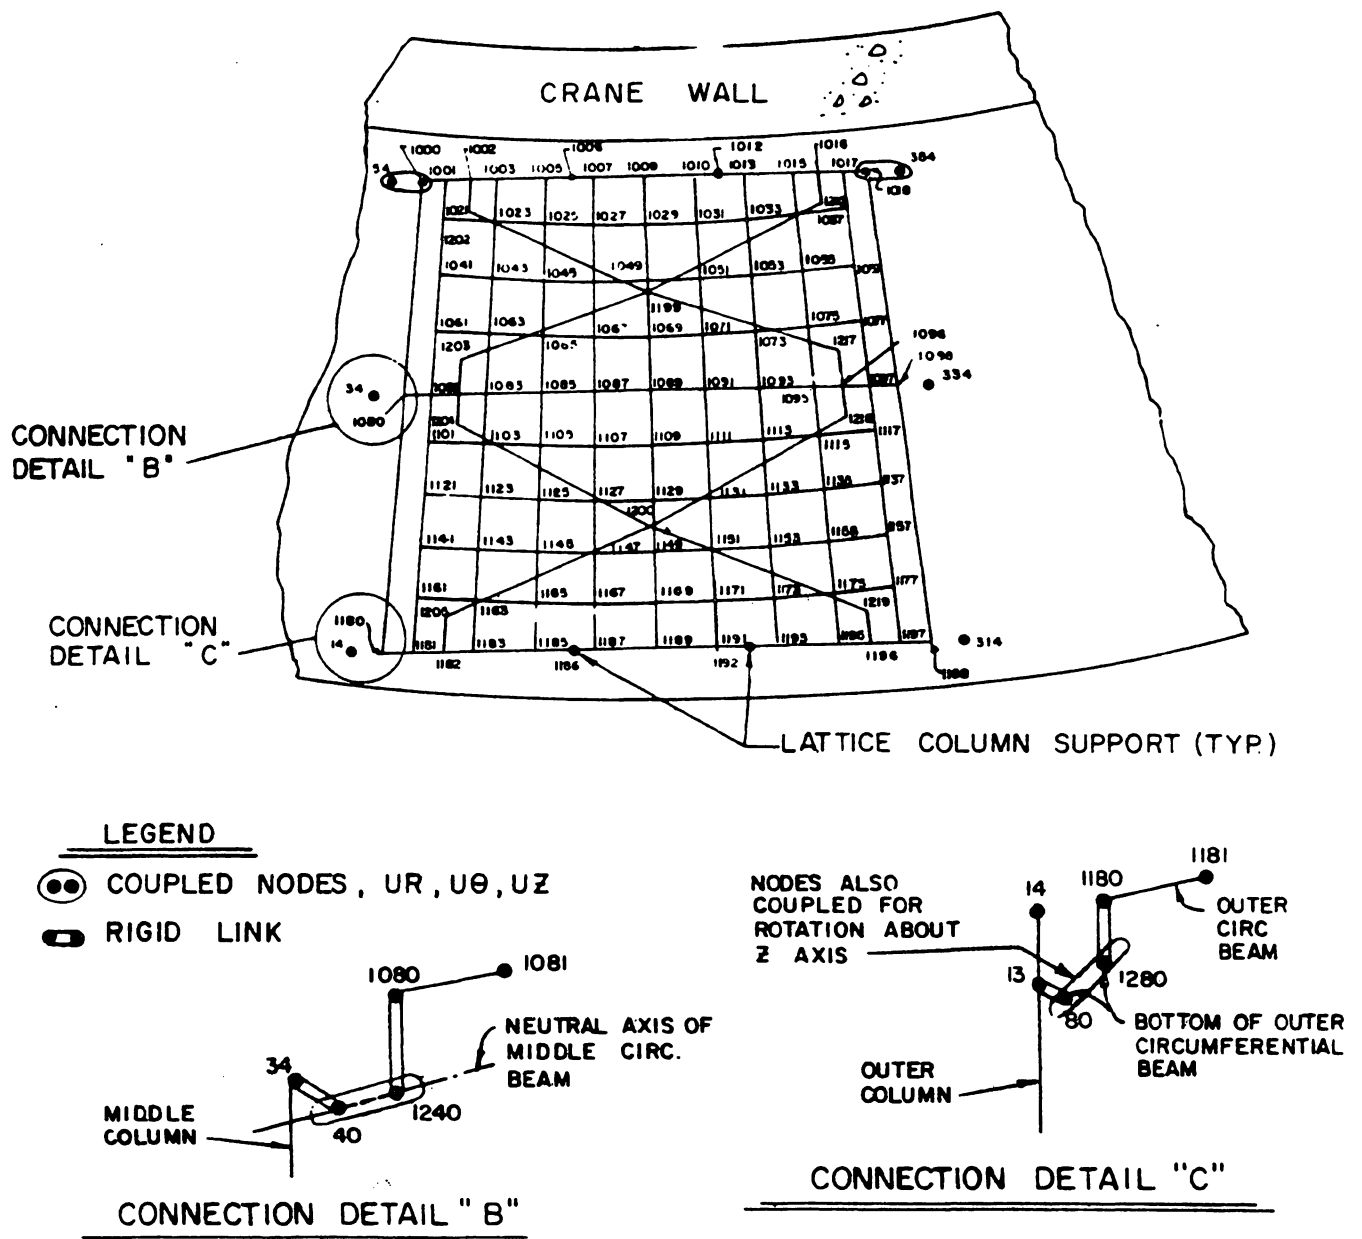 CRANE WALL
1000 1002 1006 1012 1016
54 1001 1003 1005 1007 1009 1010 1013 1015 1017 384
1018
1021 1023 1025 1027 1029 1031 1033
1037
1202
1041 1043 1045 1049 1051 1053 1055 1057
1199
1061 1063 1069 1071 1075 1077
1203 1065 1073 1217 1096
1098
34 1083 1085 1087 1089 1091 1093 1097 334
1080 1095
1204 1218
CONNECTION
DETAIL "B"
1101 1103 1105 1107 1109 1111 1113 1115 1117
1121 1123 1125 1127 1129 1131 1133 1135 1137
1200
1141 1143 1145 1147 1149 1151 1153 1155 1157
1161 1163 1165 1167 1169 1171 1173 1175 1177
1219
CONNECTION
DETAIL "C"
1180
14 1181 1183 1185 1187 1189 1191 1193 1195 1197 314
1182 1186 1192 1196 1198
LATTICE COLUMN SUPPORT (TYP.)
LEGEND
COUPLED NODES, UR, UΘ, UZ
RIGID LINK
1080
1081
34
NEUTRAL AXIS OF
MIDDLE CIRC.
BEAM
MIDDLE
COLUMN
40
1240
CONNECTION DETAIL "B"
NODES ALSO
COUPLED FOR
ROTATION ABOUT
Z AXIS
14
1180
1181
OUTER
CIRC
BEAM
13
1280
80
BOTTOM OF OUTER
CIRCUMFERENTIAL
BEAM
OUTER
COLUMN
CONNECTION DETAIL "C"